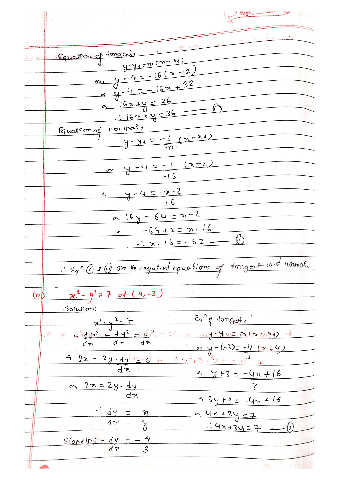 Equation of tangent:
y-y₁ = m(x-x₁)
or y-4 = -16(x-2)
or y-4 = -16x+32
or 16x+y = 36
∴ 16x+y=36
Equation of normal:
y-y₁ = -1/m (x-x₁)
or y-4 = -1/-16 (x-2)
or y-4 = x-2/16
or 16y-64 = x-2
∴ Eqⁿ & are the required equations of tangent and normal.
x²-y²=7 at (4,-3)
Solution:
x²-y²=7
or dx²/dx - dy²/dx = d7/dx
or 2x-2y.dy/dx=0
or 2x = 2y.dy/dx
∴ dy/dx = x/y
Slope(m) = dy/dx = -4/3
Eqⁿ of tangent:
y-y₁ = m(x-x₁)
or y-(-3) = -4/3(x-4)
or y+3 = -4x+16/3
or 3y+9 = -4x+16
or 4x+3y=7
∴ 4x+3y=7